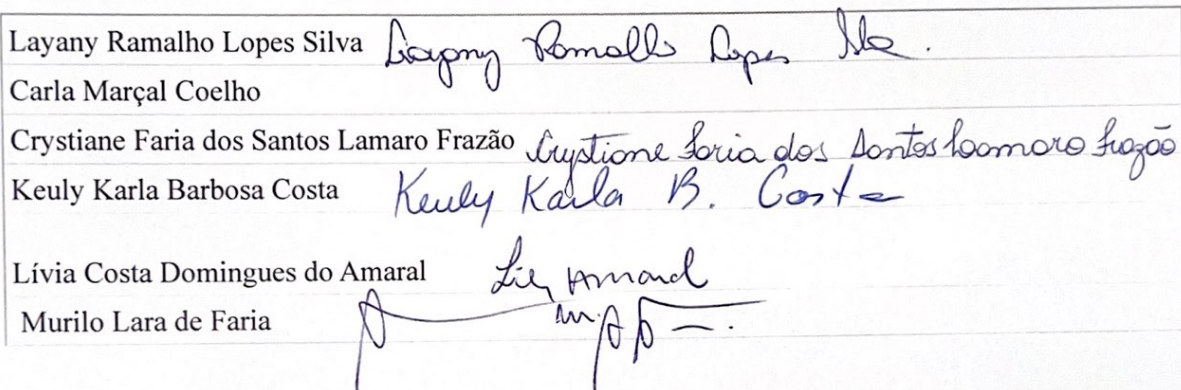 Layany Ramalho Lopes Silva Layany Ramalho Lopes
Carla Marçal Coelho
Crystiane Faria dos Santos Lamaro Frazão Crystiane Faria dos Santos Lamaro Frazão
Keuly Karla Barbosa Costa Keuly Karla B. Costa
Lívia Costa Domingues do Amaral Amaral
Murilo Lara de Faria